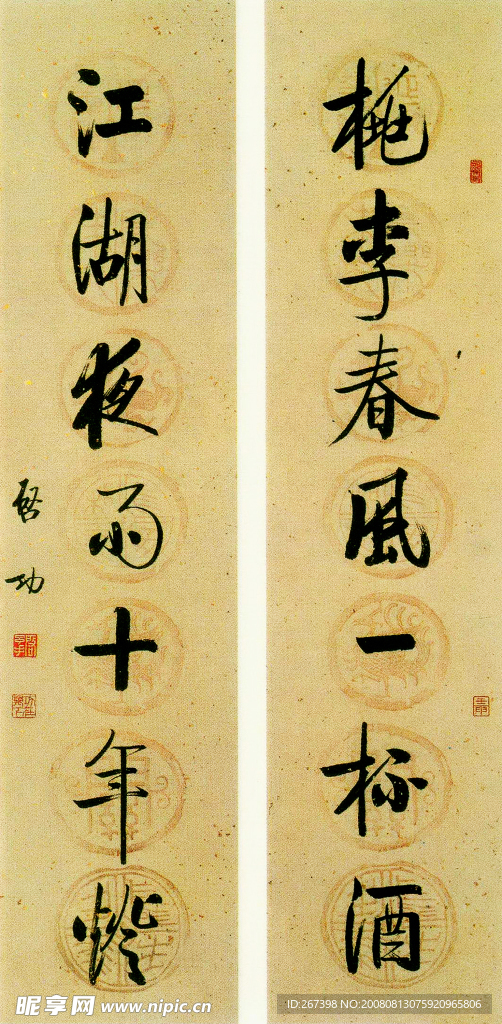 桃李春風一杯酒
江湖夜雨十年燈
啓功
昵享网 www.nipic.cn
ID:267398 NO:20080813075920965806